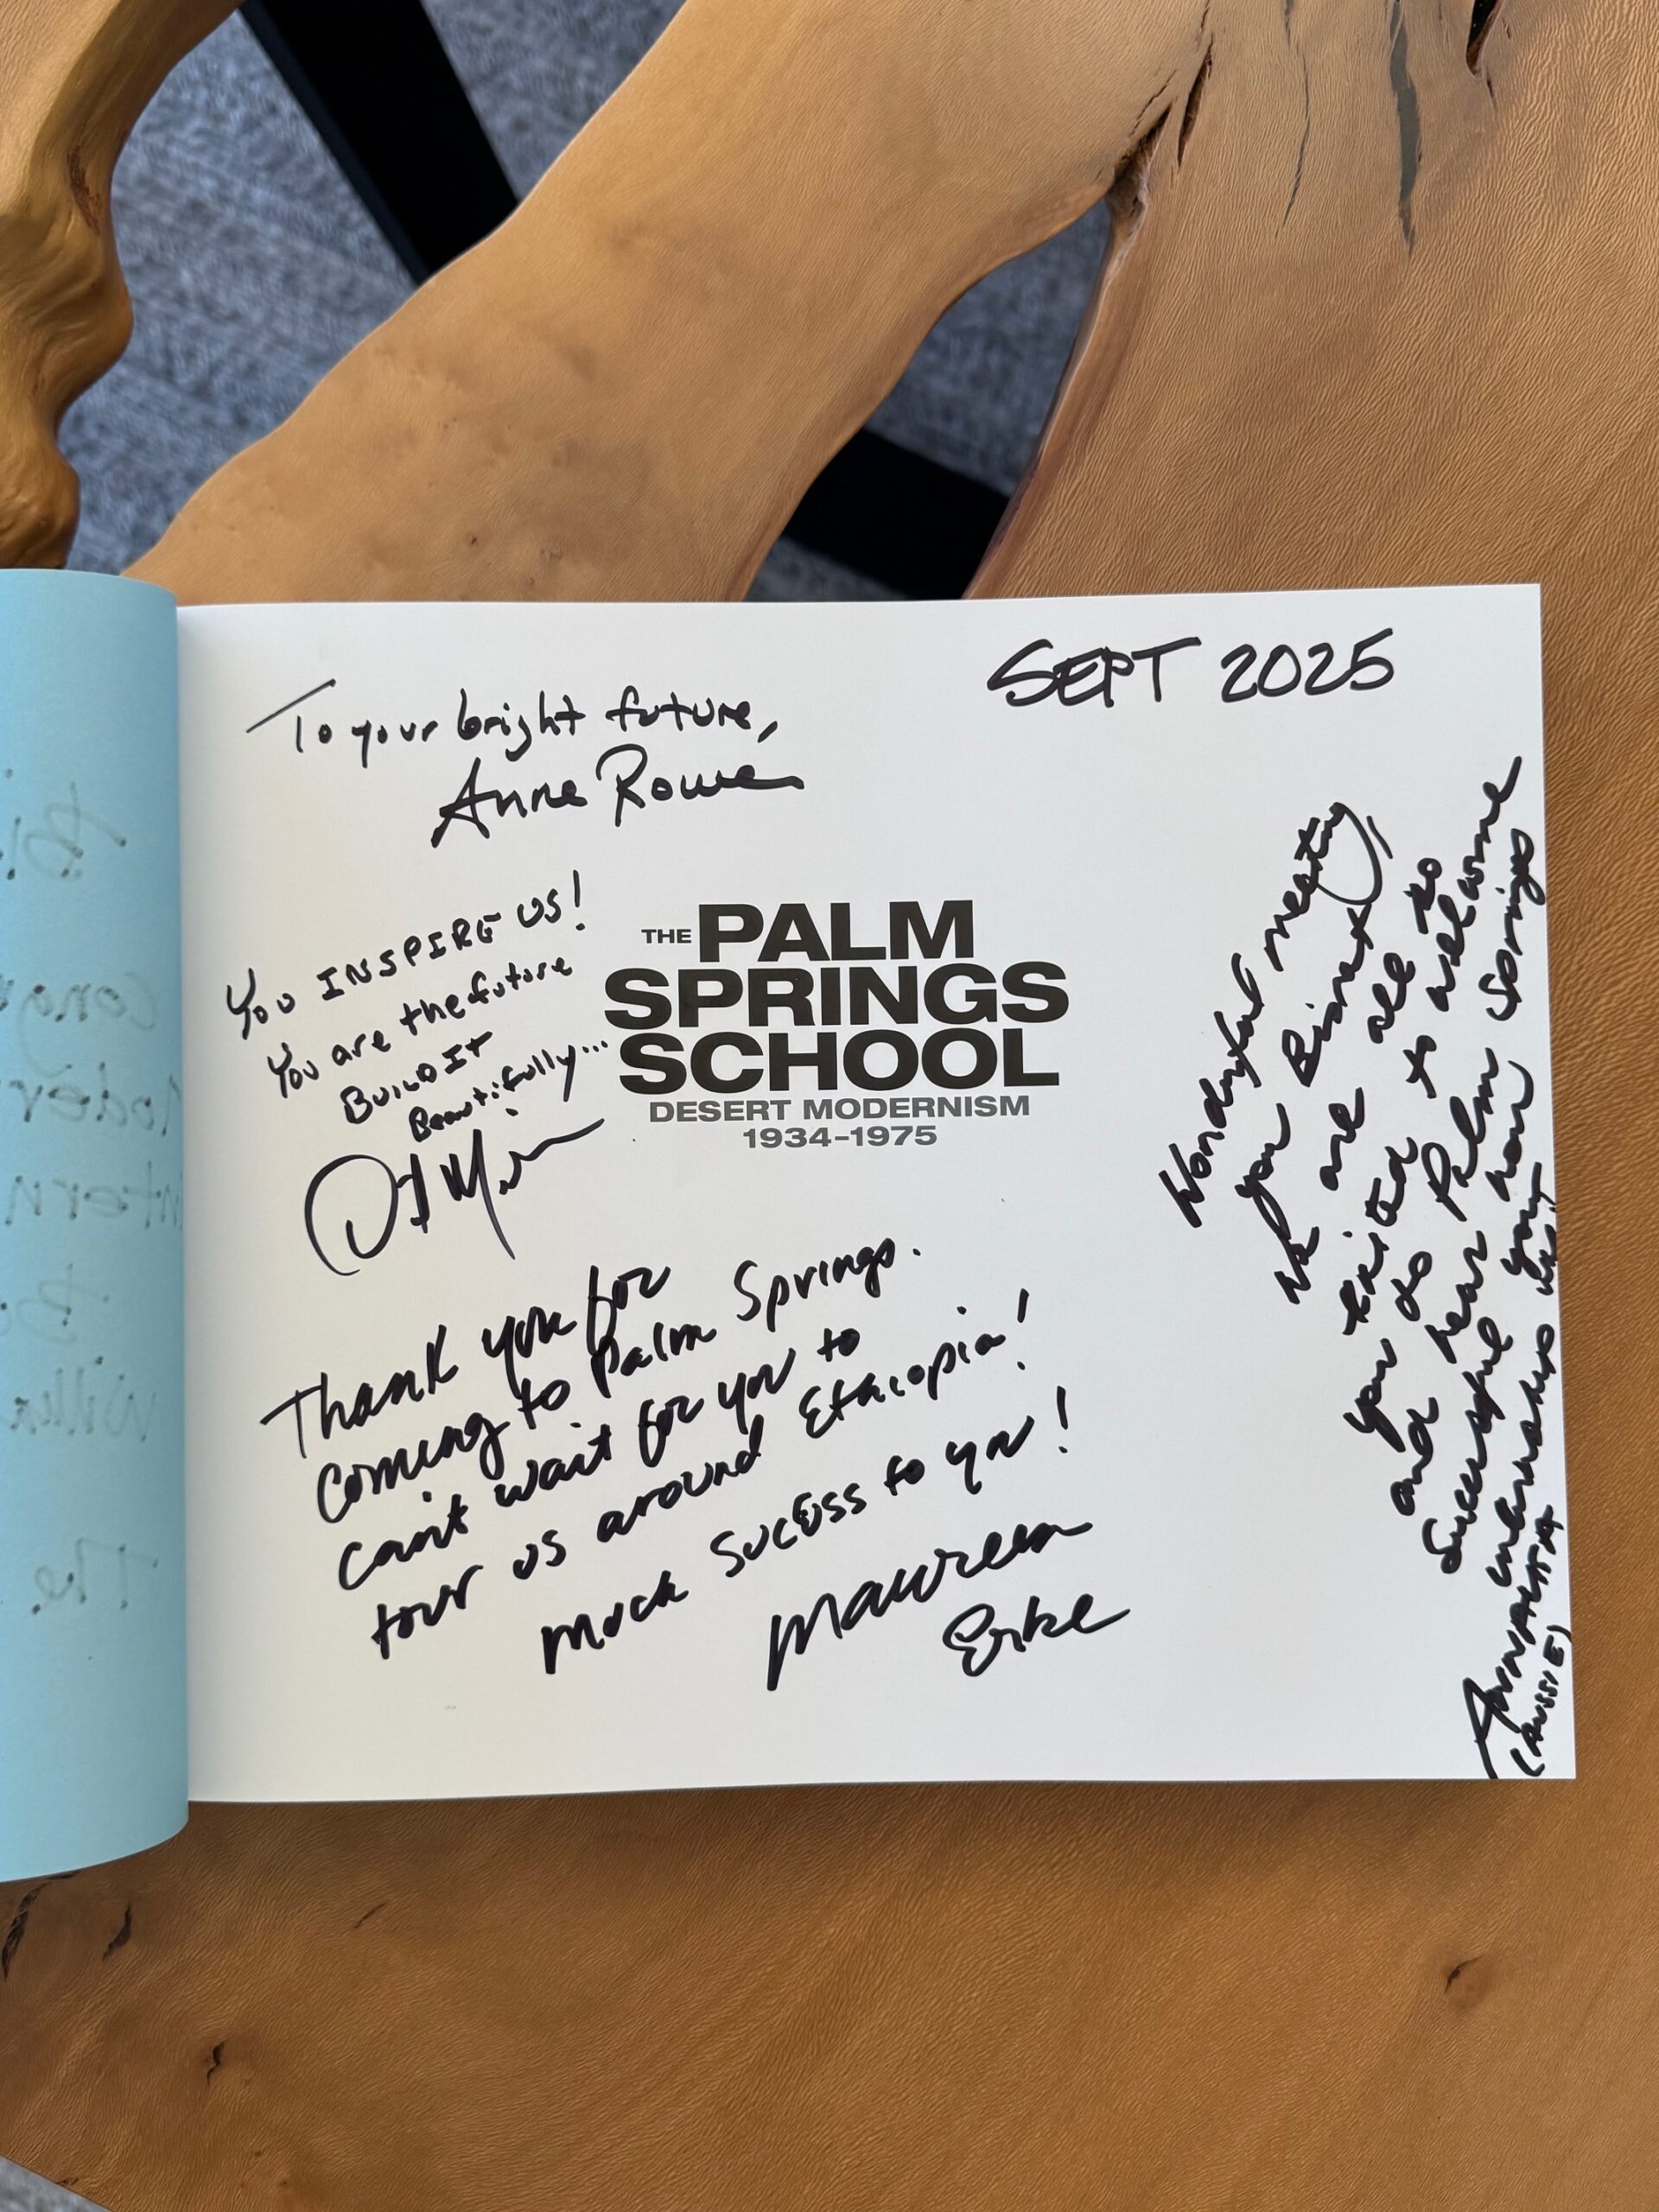 SEPT 2025
To your bright future,
Anne Rowe
You INSPIRE US!
You are the future
BUILD IT
Beautifully...
THE PALM
SPRINGS
SCHOOL
DESERT MODERNISM
1934-1975
Thank you for
coming to Palm Springs.
can't wait for you to
tour us around Ethiopia!
much sucess to you!
Maureen
Erbe
Wonderful meeting
you
We are all
excited to
you do to welcome
and hear Palm Springs
successful your
(AUSSIE)